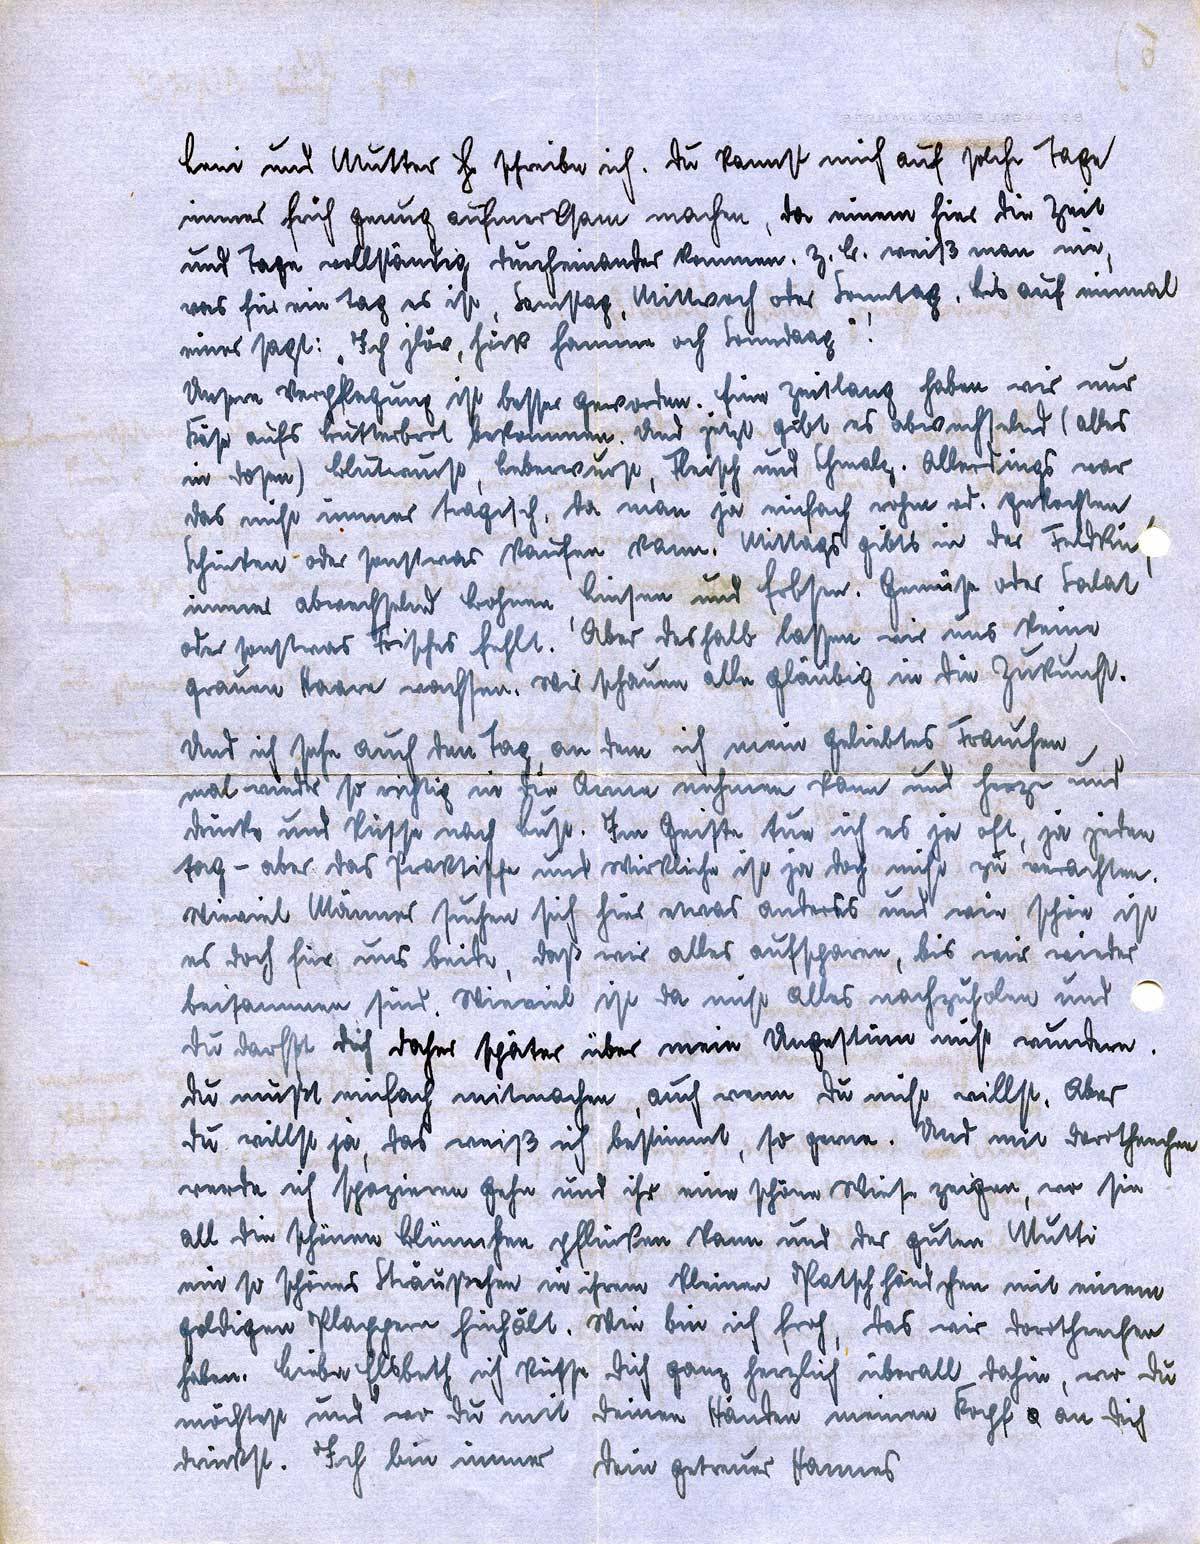 Leni und Mutter H. schreibe ich. Du kannst mich auf solche Tage
immer früh genug aufmerksam machen, da einem hier die Zeit
und Tage vollständig durcheinander kommen. Z. B. weiß man nie,
was für ein Tag es ist, Samstag, Mittwoch oder Sonntag, bis auf einmal
einer sagt: "Ich jlöv, hück hamme och Sonndaag"!
Unsere Verpflegung ist besser geworden. Eine Zeitlang haben wir nur
Käse aufs Butterbrot bekommen. Und jetzt gibt es abwechselnd (alles
in Dosen) Blutwurst, Leberwurst, Fleisch und Schmalz. Allerdings war
das nicht immer tragisch, da man ja einfach rohen od. gekochten
Schinken oder sonstwas kaufen kann. Mittags gibts in der Feldkü
immer abwechselnd Bohnen, Linsen und Erbsen. Gemüse oder Salat
oder sonstwas Frisches fehlt. Aber deshalb lassen wir uns keine
grauen Haare wachsen. Wir schauen alle gläubig in die Zukunft.
Und ich sehe auch den Tag, an dem ich mein geliebtes Frauchen
mal wieder so richtig in die Arme nehmen kann und herze und
drücke und küsse nach Lust. Im Geiste tue ich es ja oft, ja jeden
Tag - aber das Praktische und Wirkliche ist ja doch nicht zu verachten.
Wieviel Männer suchen sich hier etwas anderes und wie schön ist
es doch für uns beide, daß wir alles aufsparen, bis wir wieder
beisammen sind. Wieviel ist da nicht alles nachzuholen und
Du darfst Dich daher später über mein Ungestüm nicht wundern.
Du mußt einfach mitmachen, auch wenn Du nicht willst. Aber
Du willst ja, das weiß ich bestimmt, so gerne. Und mit Dorthechen
werde ich spazieren gehn und ihr eine schöne Wiese zeigen, wo sie
all die schönen Blümchen pflücken kann und der guten Mutti
ein so schönes Sträußchen in ihrem kleinen Patschhändchen mit einem
goldigen Plappern hinhält. Wie bin ich froh, das wir Dorthechen
haben. Liebe Elsbeth ich küsse Dich ganz herzlich überall dahin, wo Du
möchtest und wo Du mit Deinen Händen meinen Kopf an Dich
drückst. Ich bin immer Dein getreuer Hannes